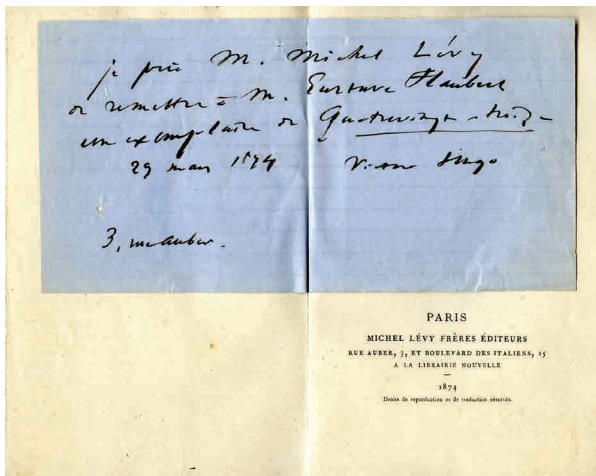 je prie M. Michel Lévy
de remettre à M. Gustave Flaubert
un exemplaire de Quatrevingt-treize
29 mars 1874 Victor Hugo
3, rue Auber.
PARIS
MICHEL LÉVY FRÈRES ÉDITEURS
RUE AUBER, 3, ET BOULEVARD DES ITALIENS, 15
A LA LIBRAIRIE NOUVELLE
1874
Droits de reproduction et de traduction réservés.